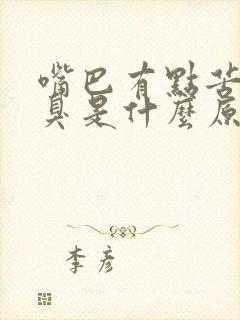 嘴巴有點苦
臭是什麼原
李彥